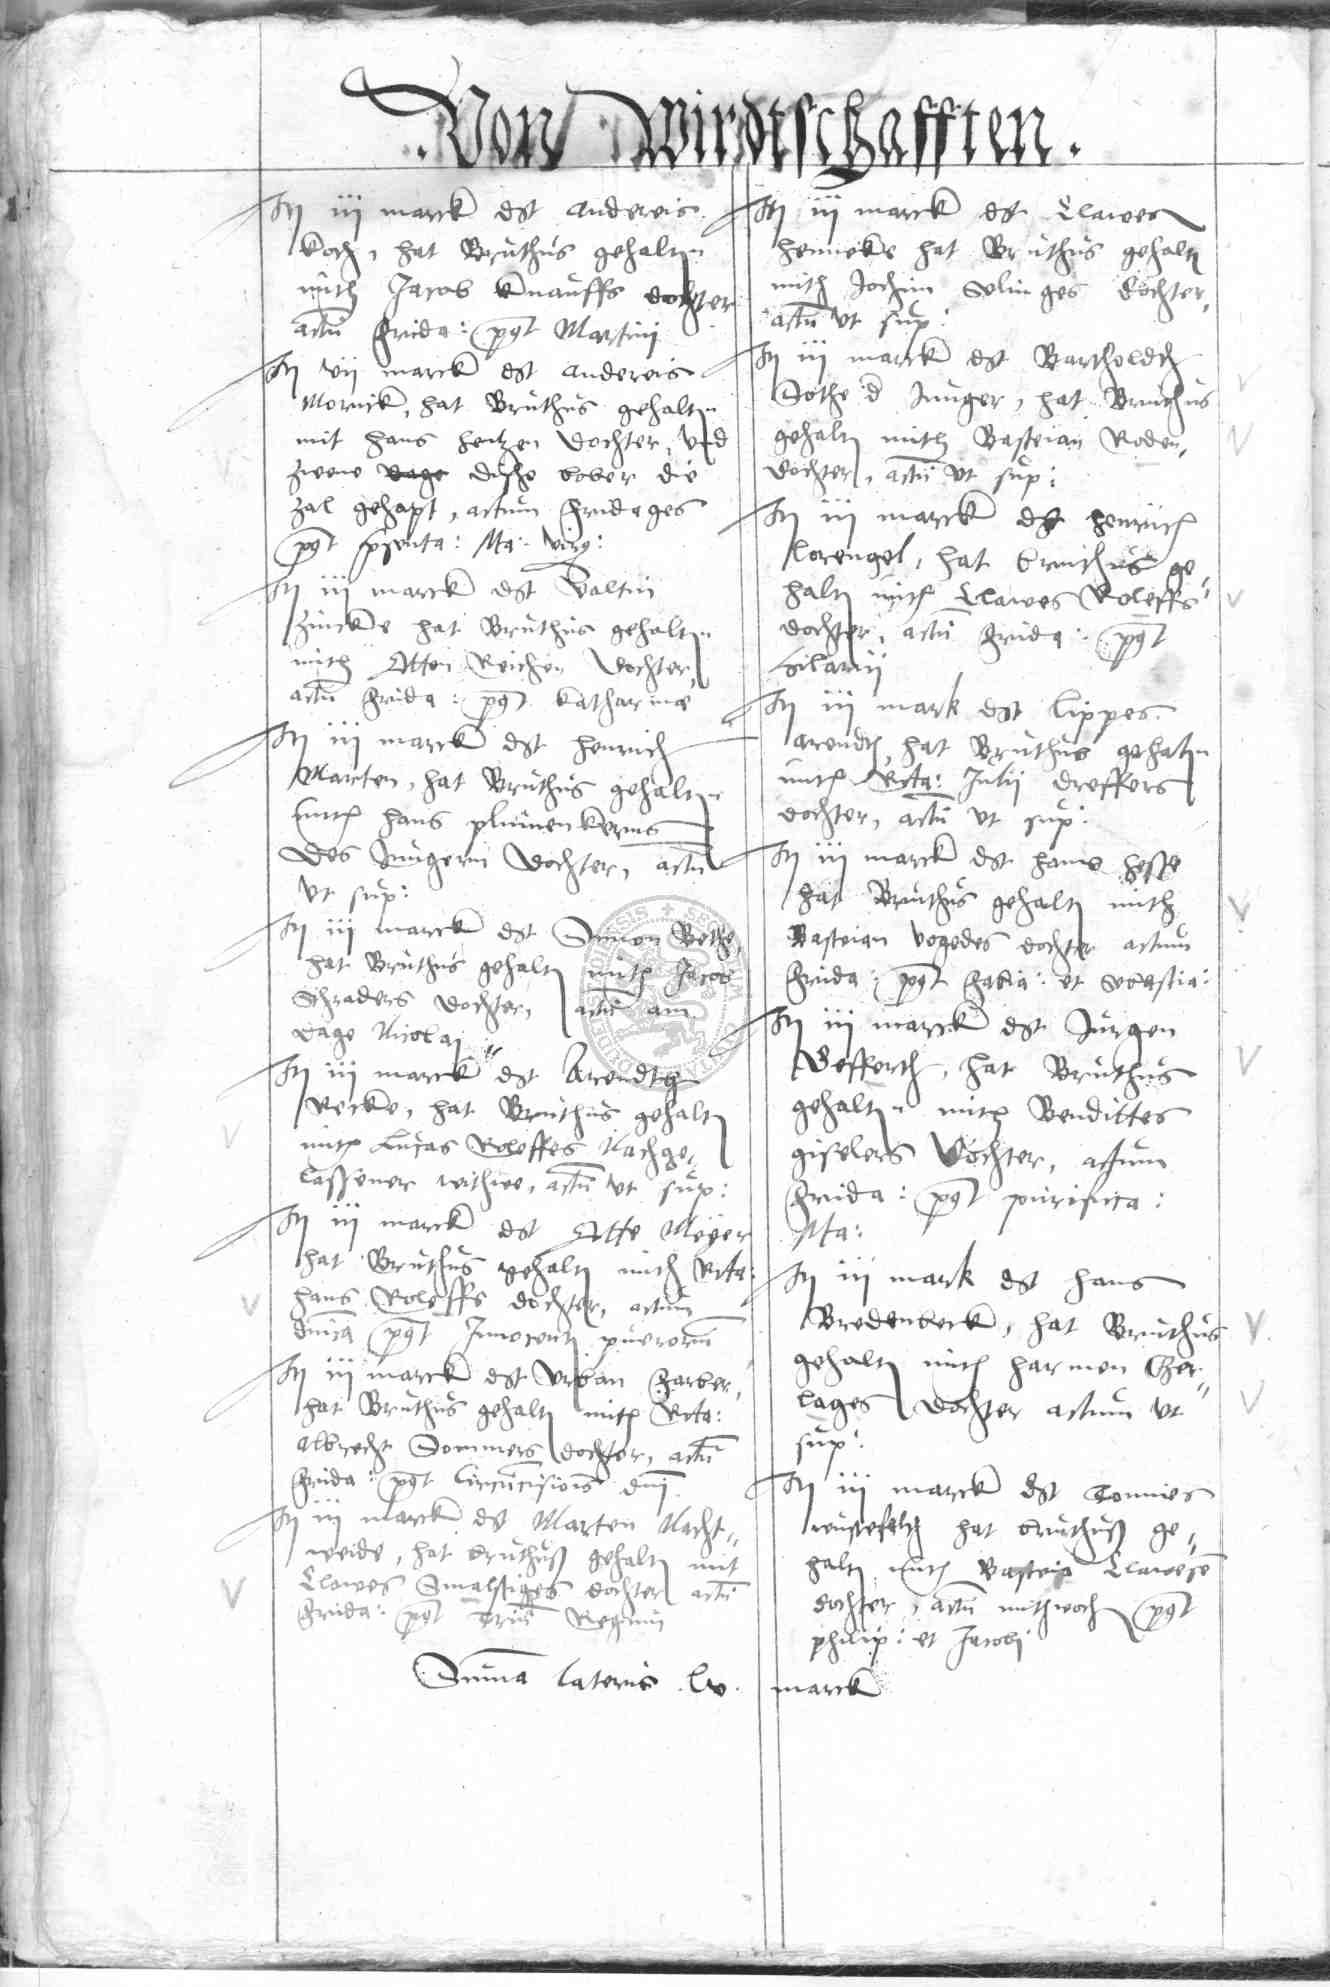 Von Wirdtschafften.
It iij marck dt Andereis
Koch, hat Bruthus gehaltn
mith Jacob Knauffs dochter
actu frida: pt Martini
It vij marck dt Andereis
Mornick, hat Bruthus gehaltn
mit Hans Hentzen dochter, vnd
zwene dische bober die
zal gehapt, actum fridages
pt psenta: Ma: virg:
It iij marck dt Valtin
Zincke hat Bruthus gehaltn
mith Otten Reichen dochter,
actu frida: pt Katharinae
It iij marck dt Henrich
Marten, hat Bruthus gehaltn
mith Hans plumenkerns
des Jungern dochter, actu
vt sup:
It iij marck dt Simon Bethe,
hat Bruthus gehaltn mith Jacob
Schraders dochter, actu am
dage Nicolaj
It iij marck dt Arendth
Recke, hat Bruthus gehaltn
mith Lucas Roleffes Nachge„
lassener withwe, actu vt sup:
It iij marck dt Otte Meyer
hat Bruthus gehaltn mith Rta:
Hans Roleffs dochter, actum
dnica pt Innocenti pueroru
It iij marck dt Vrban Farber„
hat Bruthus gehaltn mith Rta:
Albrecht Sommers dochter, actu
frida: pt Circucisionis dni
It iij marck dt Marten Nacht„
weide, hat bruthuß gehaltn mit
Clawes Smalstiges dochter actu
frida: pt triu Regum
It iij marck dt Clawes
Hennekes hat Bruthus gehaltn
mith Jochim Solinges dochter,
actu vt sup:
It iij marck dt Bartholdth
Bothe d Junger, hat Bruthus
gehaltn mith Basteian Roden„
dochter, actu vt sup:
It iij marck dt Henrich
Lorengel, hat bruthus ge„
haltn mith Clawes Roleffs
dochter, actu frida: pt
Hilarij
It iij mark dt Lippes
Arendth, hat Bruthus gehaltn
mith Rta: Julij dreffers
dochter, actu vt sup:
It iij marck dt Hans Hesse
hat Bruthus gehaltn mith
Basteian Vogedes dochter actum
frida: pt Fabia: et Sebastia:
It iij marck dt Jurgen
Wefferth, hat Bruthus
gehaltn mith Bendittes
giselers dochter, actum
frida: pt purifica:
Ma:
It iij mark dt Hans
Bredenbeck, hat Bruthus
gehaltn mith Harmen Ger„
lages dochter actum vt
sup:
It iij marck dt Tonnies
wustefeldt hat bruthuß ge„
haltn mith Bastein Clawesen
dochter, actu mithwoch pt
philip: et Jacobi
Suma lateris lv. marck